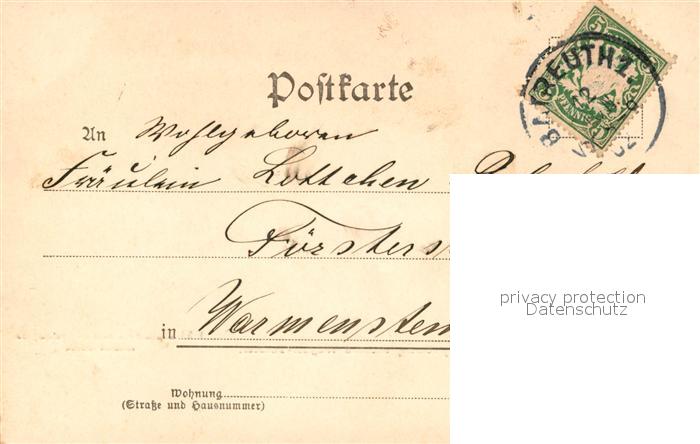 Postkarte
5
BAYREUTH 2.
PFENNIG
An Wohlgeboren
Fräulein Lottchen
Försters
in Warmensten
privacy protection
Datenschutz
Wohnung
(Straße und Hausnummer)